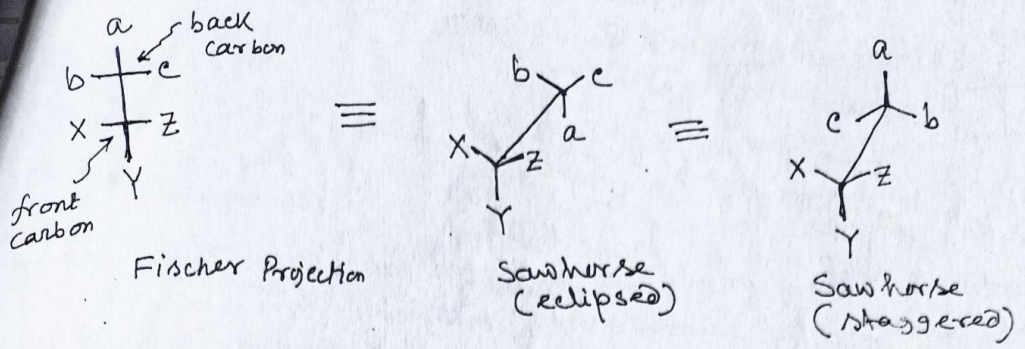 a
back
carbon
b c
X Z
Y
front
carbon
Fischer Projection
≡
b c
a
X Z
Y
Sawhorse
(eclipsed)
≡
a
c b
X Z
Y
Sawhorse
(staggered)